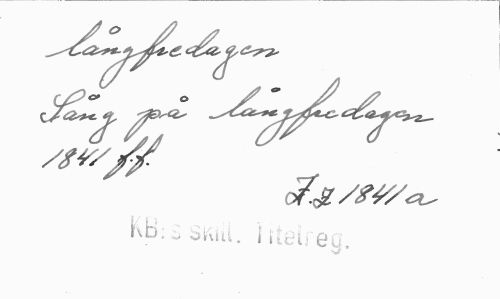 långfredagen
Sång på långfredagen
1841 f.f.
F.f 1841 a
KB:s skill. Titelreg.